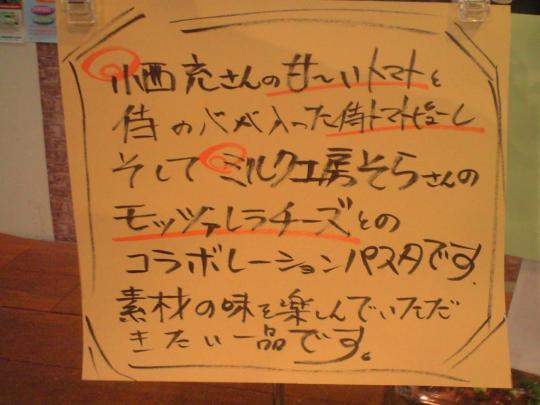 小西充さんの甘〜いトマトと
侍のハバメ入った侍トマトピューレ
そしてミルク工房そらさんの
モッツァレラチーズとの
コラボレーションパスタです。
素材の味を楽しんでいただ
きたい一品です。